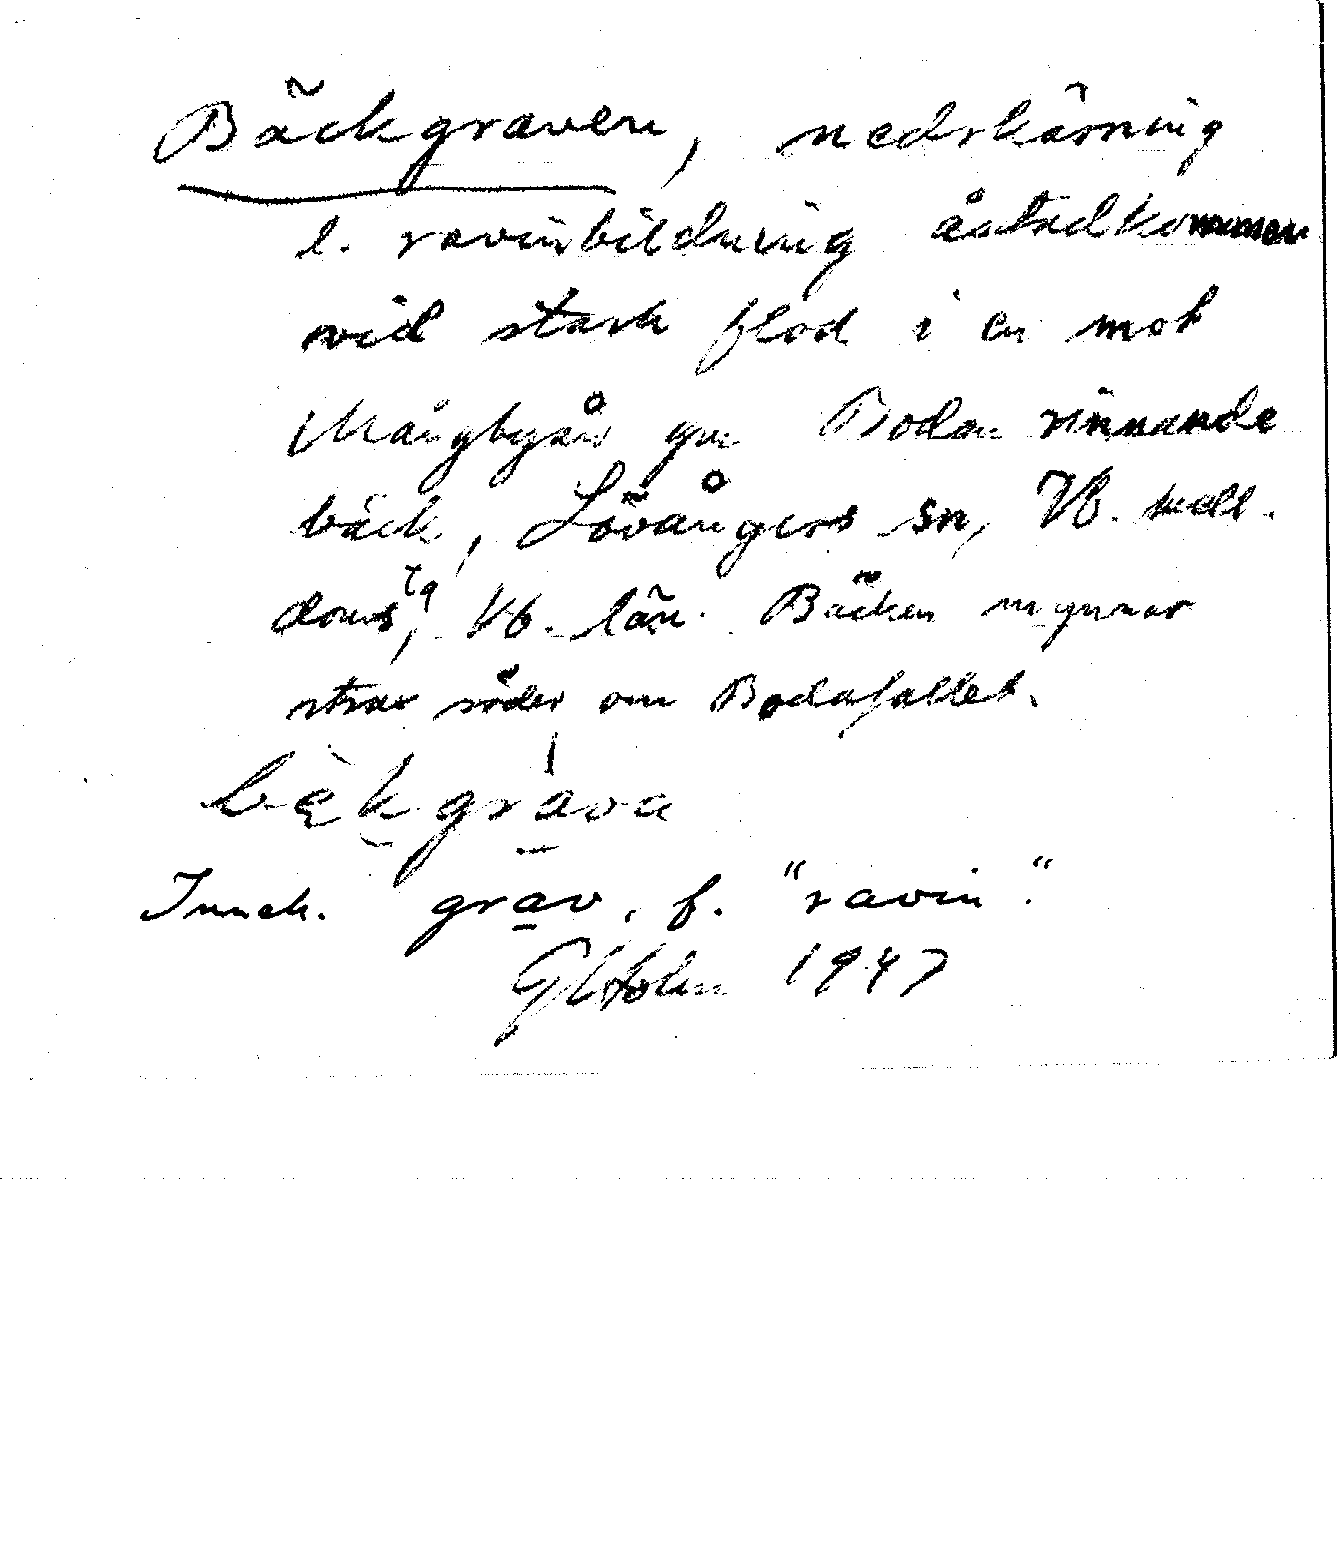 Bäckgraven, nedskärning
l. ravinbildning åstadkommen
vid stark flod i en mot
Mångbyån gm Bodan rinnande
bäck, Lövångers sn, Vb. mell.
doms tg, Vb. län. Bäcken mynnar
strax söder om Bodafallet.
bękgrava
Inneh. grav, f. "ravin".
G Holm 1947